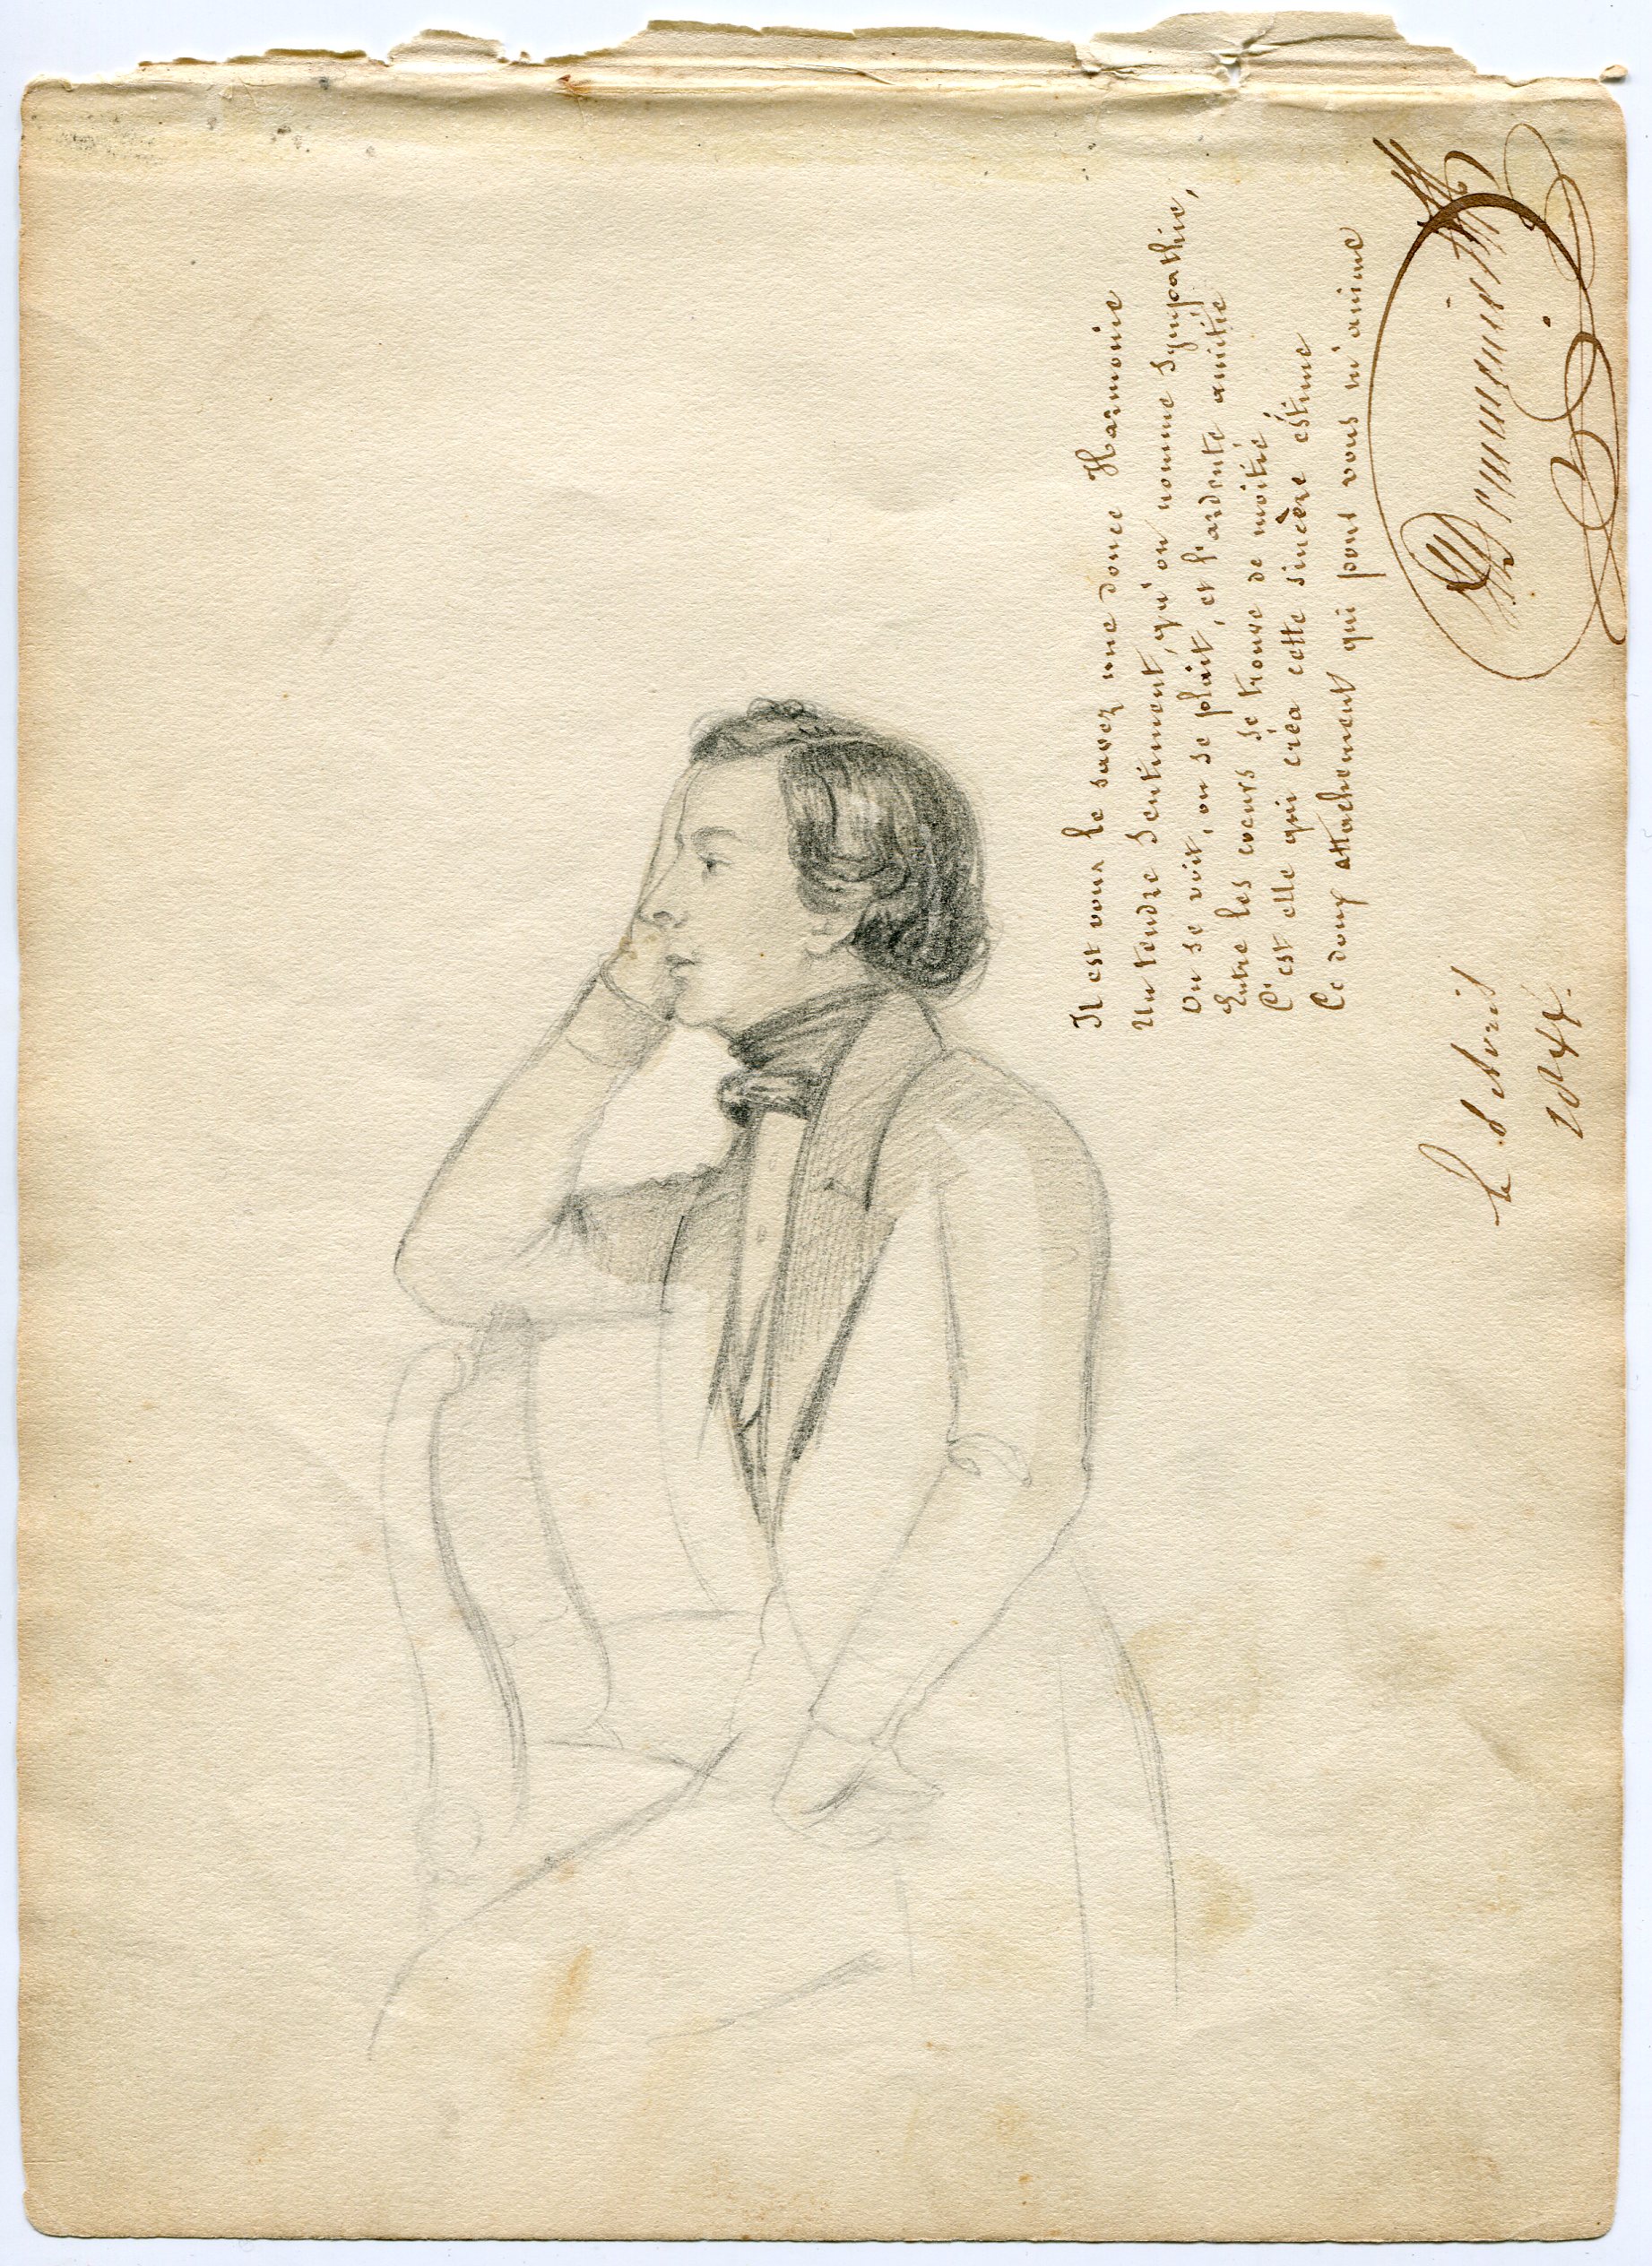 Il est vous le savez une douce Harmonie
Un tendre Sentiment, qu'on nomme Sympathie,
On se voit, on se plait, et l'ardente amitié
Entre les cœurs se trouve de moitié,
C'est elle qui créa cette sincère éstime
Ce doux attachement qui pour vous m'anime
le 8 Avril
1844.